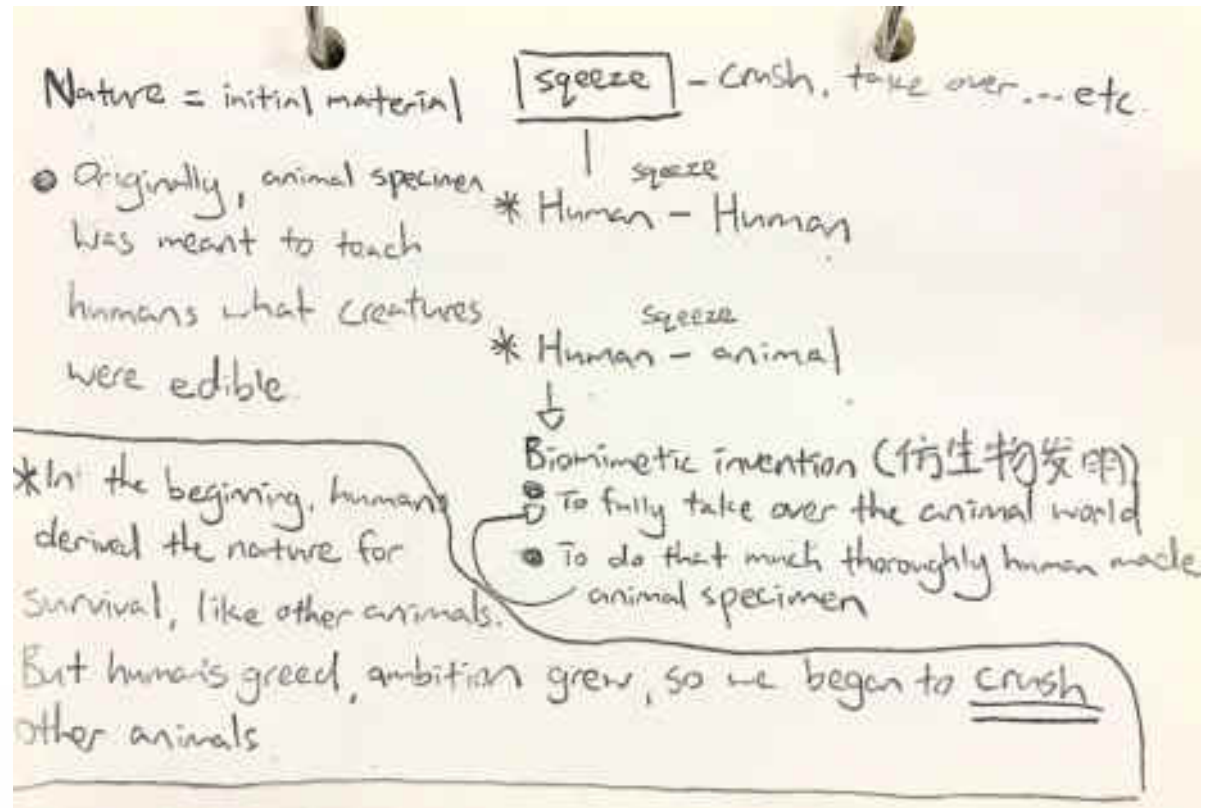 Nature = initial material
● Originally, animal specimen
was meant to teach
humans what creatures
were edible.
sqeeze - crush, take over....etc.
sqeeze
* Human - Human
sqeeze
* Human - animal
Biomimetic invention (仿生物发明)
● To fully take over the animal world
● To do that much thoroughly human made
animal specimen
*In the beginning, humans
derival the nature for
survival, like other animals.
But human's greed, ambition grew, so we began to crush
other animals